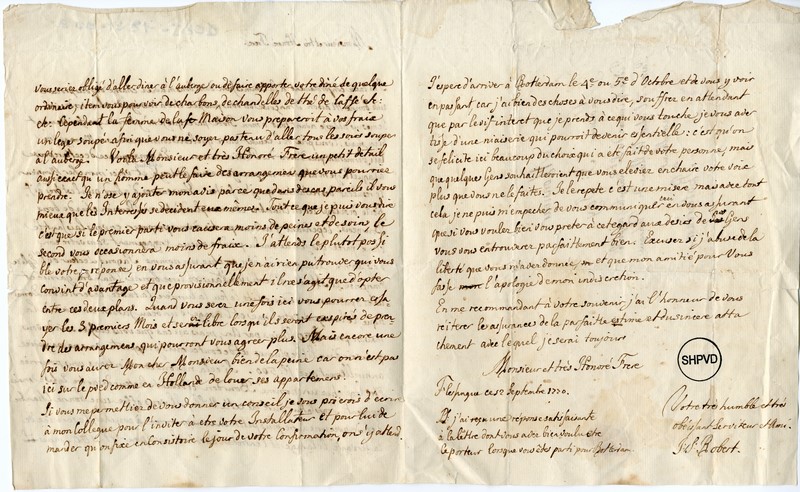 vous seriez obligé d'aller diner à l'auberge ou de faire apporter votre diné de quelque
ordinaire; item vous pourvoir de charbons, de chandelles de thé de caffé &c:
&c: Cependant la femme de la Maison vous prepareroit à vos fraix
un leger souper afin que vous ne soyez pas tenu d'aller tous les soirs souper
à l'auberge. Voila Monsieur et très Honoré Frere un petit detail
aussi exact qu'un homme peut le faire des arrangemens que vous pourrez
prendre. Je n'ose y ajouter mon avis parce que dans des cas pareils il vaut
mieux que les Interessés se decident eux mêmes. Tout ce que je puis vous dire
c'est que si le premier parti vous causera moins de peines et de soins le
second vous occasionnera moins de fraix. J'attends le plutot possi
ble votre reponse, en vous assurant que je n'ai rien pu trouver qui vous
convint d'avantage et que provisionnellement il ne s'agit que d'opter
entre ces deux plans. Quand vous serez une fois ici vous pourrez essa
yer les 3 premiers Mois et serez libre lorsqu'ils seront expirés de pren
dre des arrangemens qui pourront vous agréer plus. Mais encore une
fois vous aurez Mon cher Monsieur bien de la peine car on n'est pas
ici sur le pied comme en Hollande de louer ses appartemens.
Si vous me permettiez de vous donner un conseil je vous prierois d'écrire
à mon Collegue pour l'inviter à etre votre Installateur et pour lui de
mander qu'on fixe en Consistoire le jour de votre Confirmation, on s'y attend.
J'espere d'arriver à Rotterdam le 4e ou 5e d'Octobre et de vous y voir
en passant car j'ai bien des choses à vous dire, souffrez en attendant
que par le vif interet que je prends à ce qui vous touche, je vous aver
tisse d'une niaiserie qui pourroit devenir essentielle: c'est qu'on
se felicite ici beaucoup du choix qui a été fait de votre personne, mais
que quelques Gens souhaitteroient que vous eleviez en chaire votre voix
plus que vous ne le faites. Je le repete c'est une misere mais avec tout
cela je ne puis m'empecher de vous communiquer ceci en vous assurant
que si vous voulez bien vous preter à cet egard aux desirs de ces Gens
vous vous en trouverez parfaittement bien. Excusez si j'abuse de la
liberté que vous m'avez donnée, et que mon amitié pour Vous
fasse l'apologie de mon indiscretion.
En me recommandant à votre souvenir, j'ai l'honneur de vous
reiterer les assurances de la parfaitte estime et du sincere atta
chement avec lequel je serai toujours
Monsieur et très Honoré Frere
Flessingue ce 12 Septembre 1770.
Votre très humble et très
obeissant Serviteur et Ami.
Robert.
PS j'ai reçu une réponse satisfaisante
à la lettre dont vous avez bien voulu etre
le porteur lorsque vous êtes parti pour Rotterdam.
SHPVD